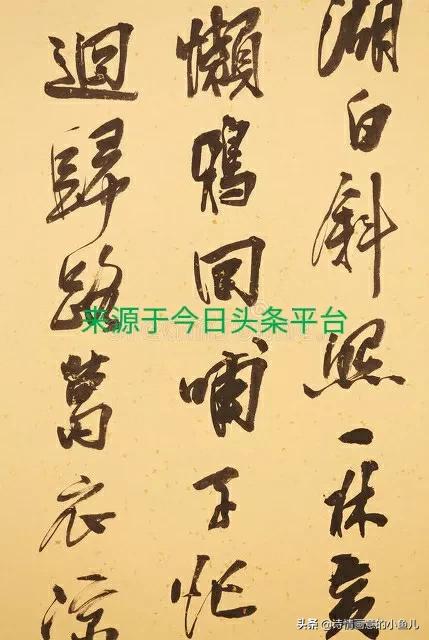 湖白斜照一林
懶鴉回哺子忙
迴歸路葛衣凉
来源于今日头条平台
头条 @诗情画意的小鱼儿